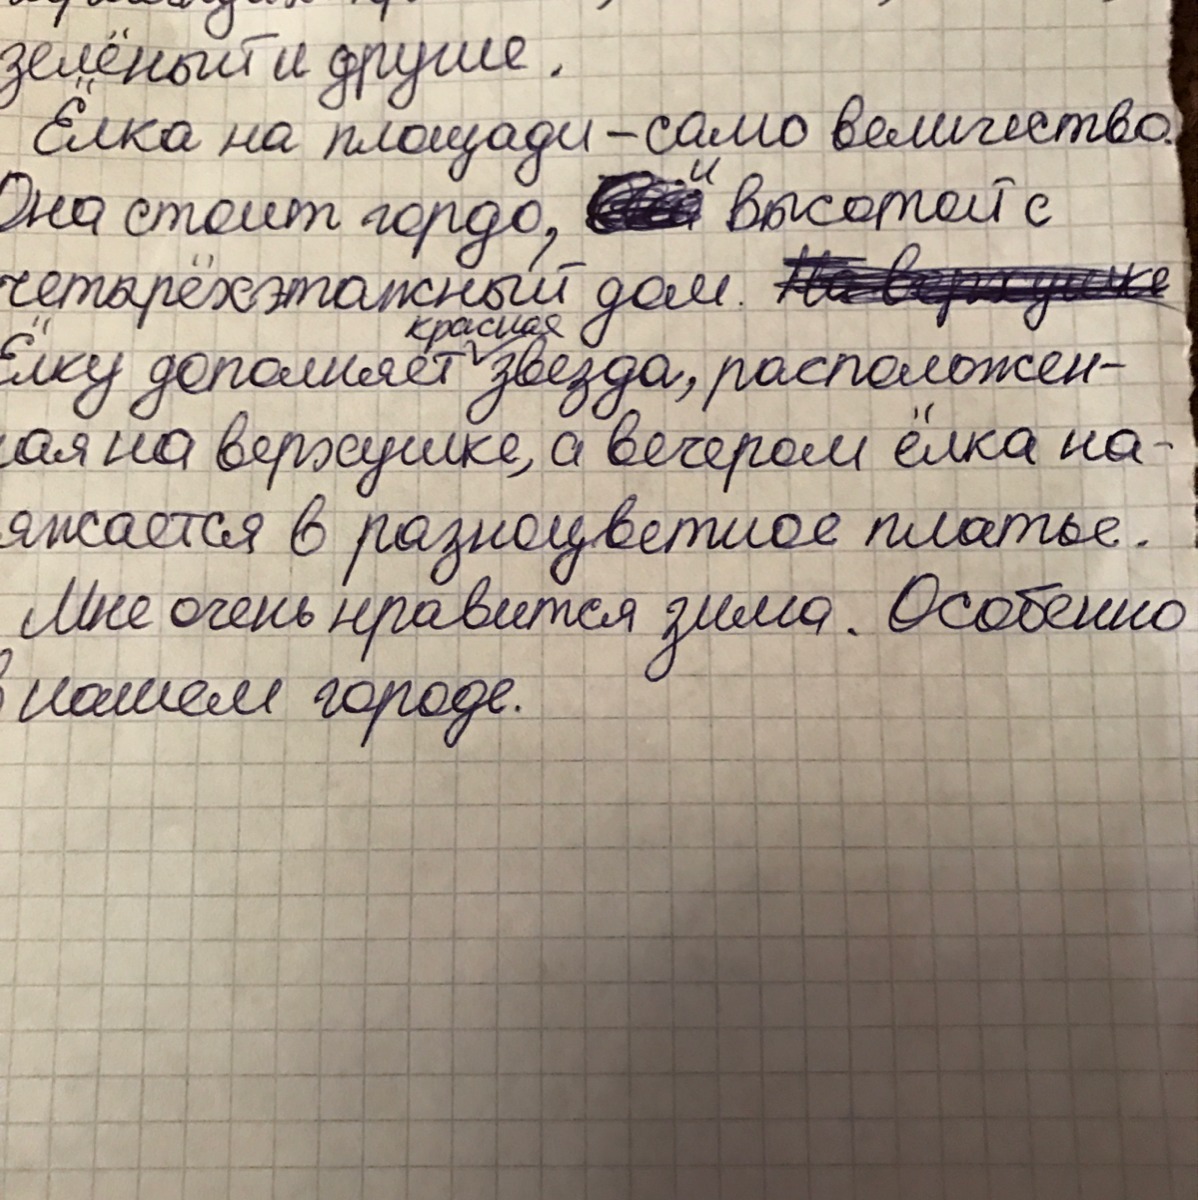 зелёный и другие.
Ёлка на площади – само величество.
Она стоит гордо, и высотой с
четырёхэтажный дом. На верхушке
Ёлку дополняет красная звезда, расположен-
ная на верхушке, а вечером ёлка на-
яжается в разноцветное платье.
Мне очень нравится зима. Особенно
в нашем городе.